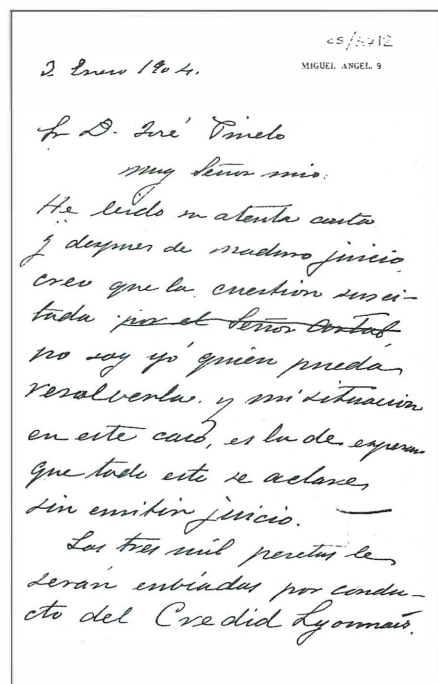 cs/3712
MIGUEL ANGEL. 9
2 Enero 1904.
Sr D. José Pinelo
Muy Señor mio:
He leido su atenta carta
y despues de maduro juicio,
creo que la cuestion susci-
tada por el Señor
no soy yó quien pueda
resolverla. y mi situacion
en este caso, es la de esperar
que todo esto se aclare,
sin emitir juicio.
Las tres mil pesetas le
serán enbiadas por conduc-
cto del Credid Lyonnais.